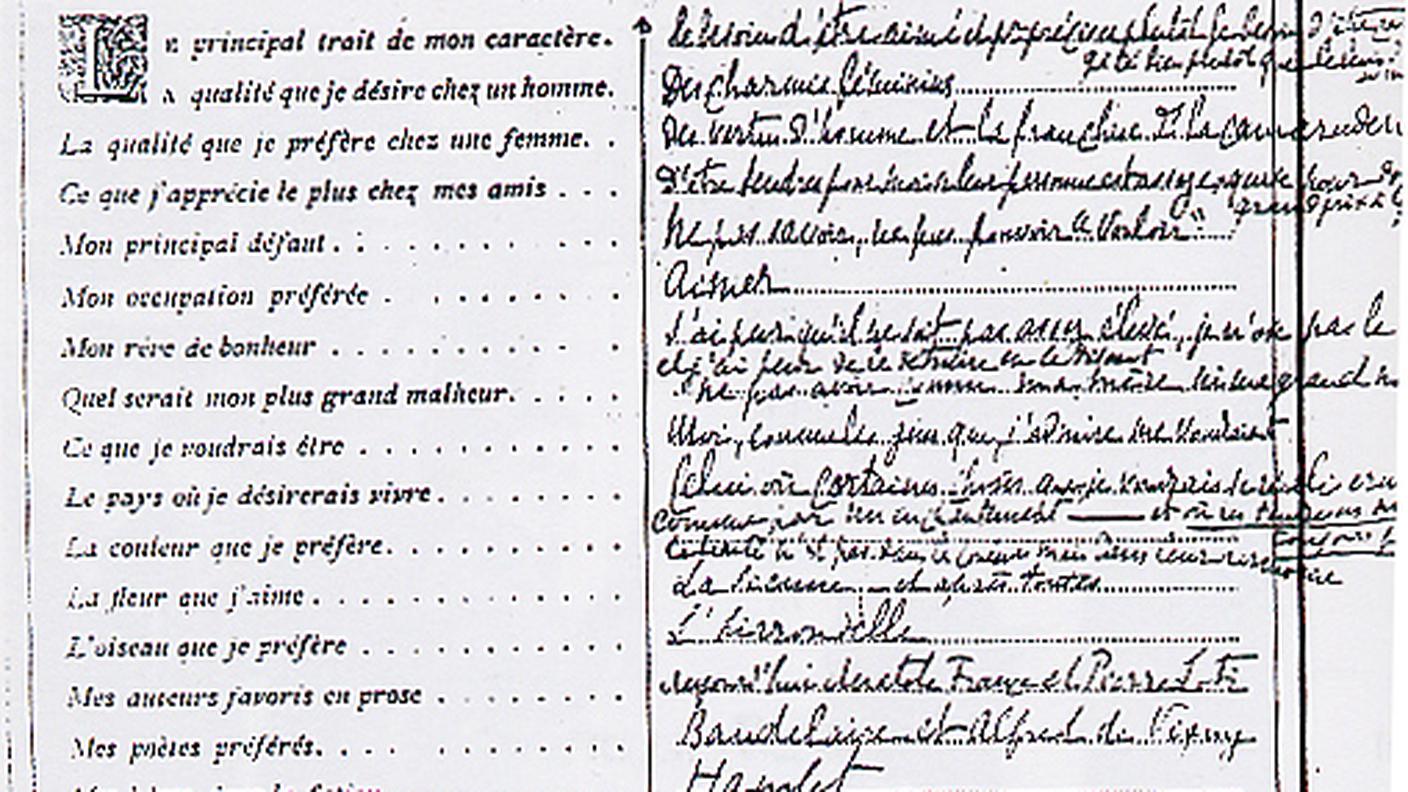 Le principal trait de mon caractère.
Le besoin d'être aimé et préciser plutôt le besoin d'être
gâté bien plutôt que le besoin
La qualité que je désire chez un homme.
Des charmes féminins
La qualité que je préfère chez une femme. .
Des vertus d'homme et la franchise dans la camaraderie
Ce que j'apprécie le plus chez mes amis . . .
D'être tendres pour moi si leur personne est assez exquise pour donner
grand prix à
Mon principal défaut. . . . . . . . . . . .
Ne pas savoir, ne pas pouvoir "vouloir"
Mon occupation préférée . . . . . . . . .
Aimer
Mon rêve de bonheur . . . . . . . . . . .
J'ai peur qu'il ne soit pas assez élevé, je n'ose pas le
et j'ai peur de le détruire en le disant
Quel serait mon plus grand malheur. . . . . .
ne pas avoir connu ma mère ni ma grand m
Ce que je voudrais être . . . . . . . . . . .
Moi, comme les gens que j'admire me voudraient
Le pays où je désirerais vivre. . . . . . . .
Celui où certaines choses que je voudrais se réali
comme par un enchantement — et où les tendresses
toujours
La couleur que je préfère. . . . . . . . . .
La beauté n'est pas dans les couleurs mais dans leur harmonie
La fleur que j'aime . . . . . . . . . . . .
La sienne — et après toutes
L'oiseau que je préfère . . . . . . . . . .
L'hirondelle
Mes auteurs favoris en prose . . . . . . . .
aujourd'hui Anatole France et Pierre Loti
Mes poètes préférés. . . . . . . . . . . .
Baudelaire et Alfred de Vigny
Hamlet